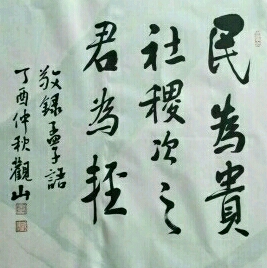 民為貴
社稷次之
君為輕
敬録孟子語
丁酉仲秋觀山